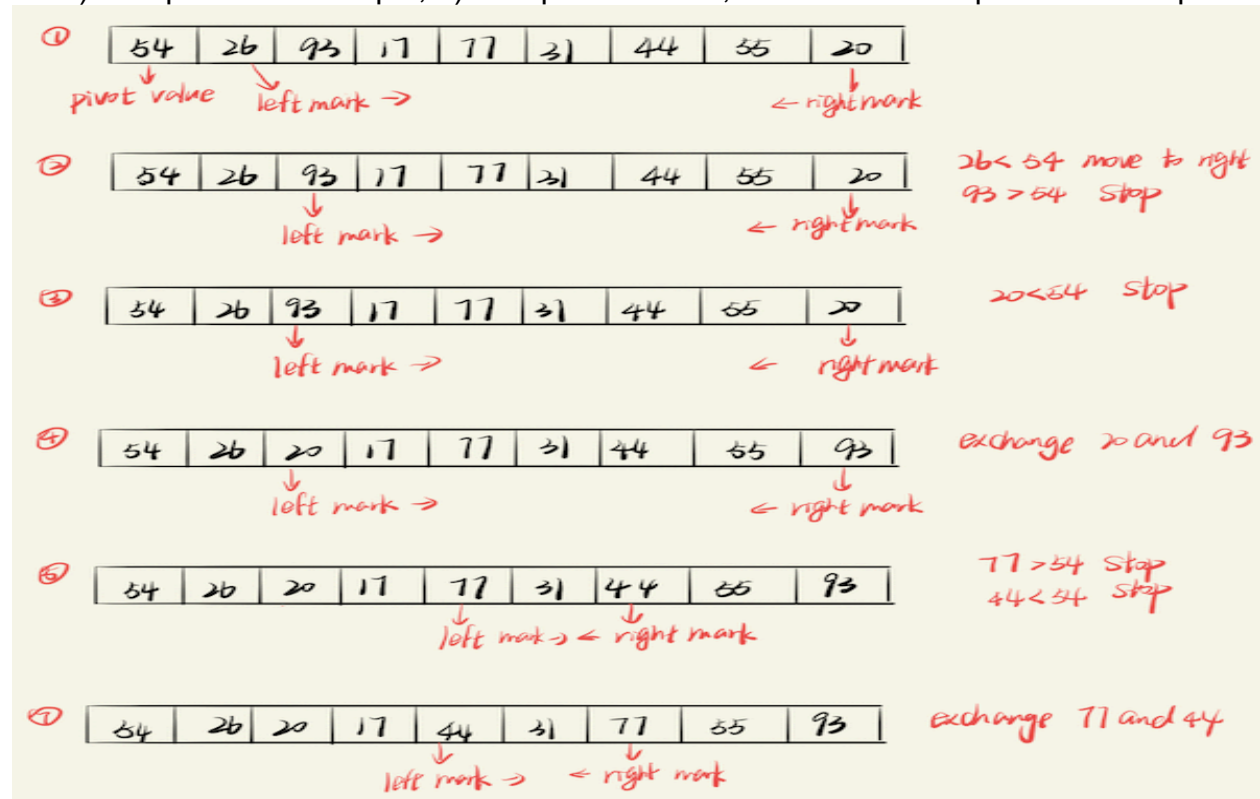 ① 54 26 93 17 77 31 44 55 20
pivot value left mark → ← rightmark
② 54 26 93 17 77 31 44 55 20
26 < 54 move to right
93 > 54 stop
left mark → ← rightmark
③ 54 26 93 17 77 31 44 55 20
20 < 54 stop
left mark → ← rightmark
④ 54 26 20 17 77 31 44 55 93
exchange 20 and 93
left mark → ← right mark
⑤ 54 26 20 17 77 31 44 55 93
77 > 54 stop
44 < 54 stop
left mak → ← right mark
⑦ 54 26 20 17 44 31 77 55 93
exchange 77 and 44
left mark → ← right mark